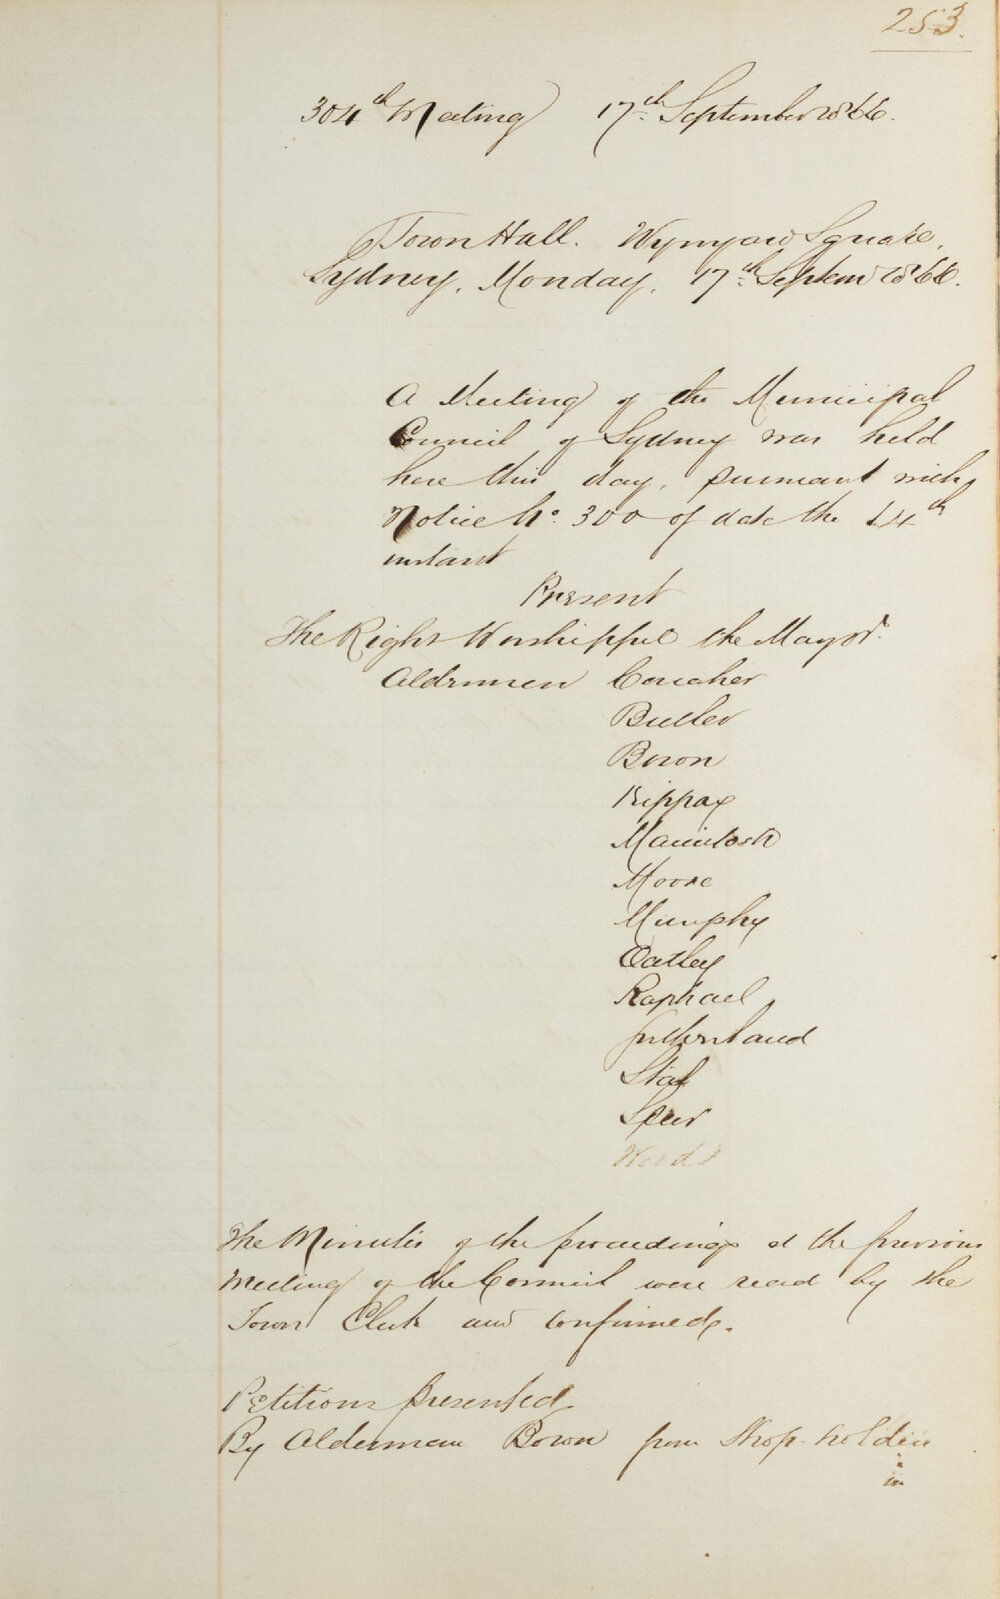 253.
304th Meeting 17th September 1866.
Town Hall. Wynyard Square.
Sydney. Monday. 17th Septemr 1866.
A Meeting of the Municipal
Council of Sydney was held
here this day. pursuant with
Notice No. 300 of date the 14th
instant
Present
The Right Worshipful the Mayor.
Aldermen Conaher
Butler
Bown
Kippax
Macintosh
Moore
Murphy
Oatley
Raphael
Sutherland
Spier
Woods
The Minutes of the proceedings at the previous
Meeting of the Council were read by the
Town Clerk and confirmed.
Petitions presented
By Alderman Bown from Shop-holders
in